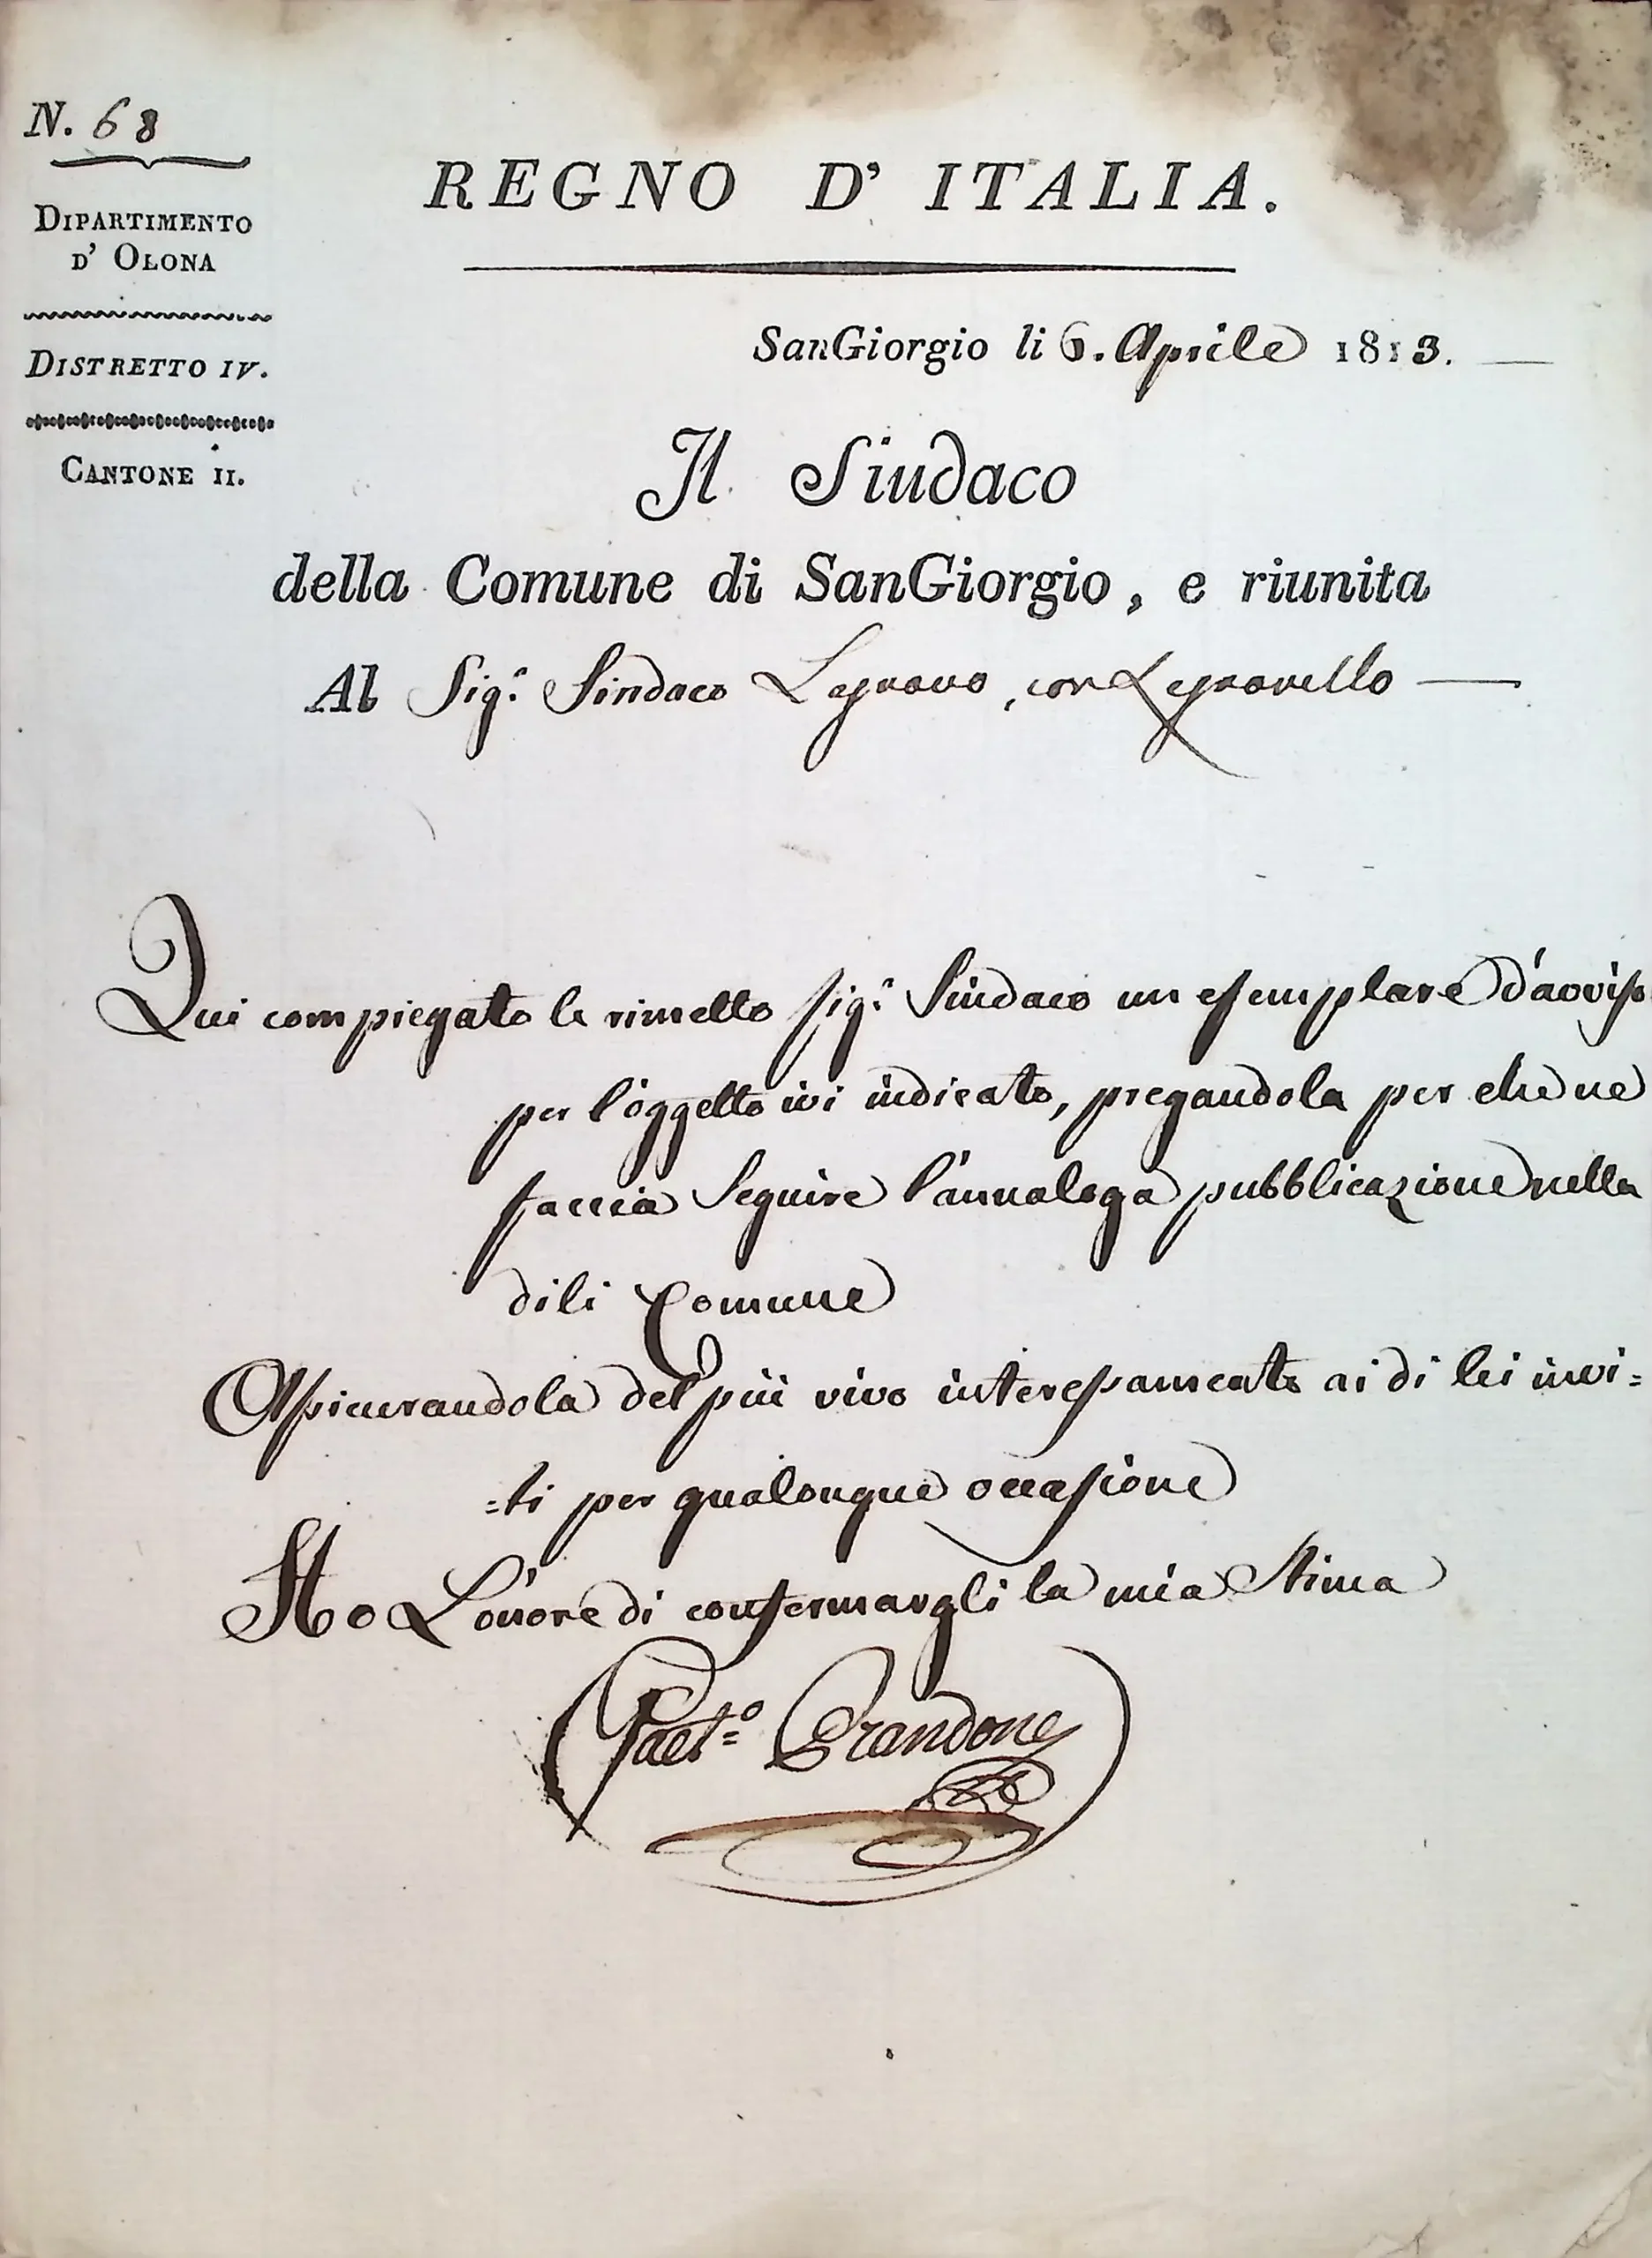 N. 68
DIPARTIMENTO
D' OLONA
DISTRETTO IV.
CANTONE II.
REGNO D' ITALIA.
SanGiorgio li 6. Aprile 1813.
Il Sindaco
della Comune di SanGiorgio, e riunita
Al Sig.r Sindaco Legnano, con Legnanello
Qui compiegato le rimetto Sig.r Sindaco un esemplare d'avviso
per l'oggetto ivi indicato, pregandola per che ne
faccia seguire l'annaloga pubblicazione nella
di li Comune
Assicurandola del più vivo interessamento ai di lei invi=
=ti per qualonque occasione
Ho L'onore di confermargli la mia Stima
Gaet.o Brandone